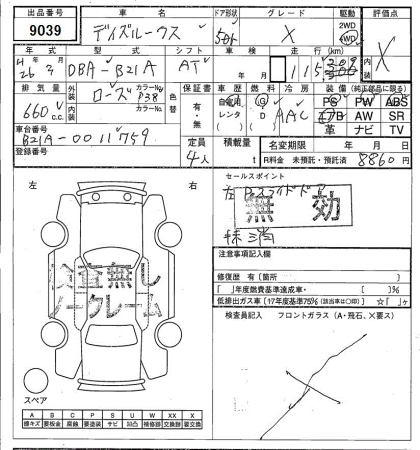 出品番号 車名 ドア形状 グレード 駆動 評価点
9039 デイズルークス 5dr X 2WD 4WD X
年式 型式 シフト 車検 走行 km 内装
H26 3 DBA-B21A AT 年 月
排気量 外装 ローズ カラーNo. P38 色替 保証書 車歴 燃料 冷房 装備（純正部品に限る）
660 c.c. 内装 カラーNo. 有・無 自家用 G AAC PS PW ABS
車台番号 レンタ D エアB AW SR
B21A-0011759 革 ナビ TV
登録番号 定員 積載量 名変期限 年 月 日
4人 t R料金 未預託・預託済 8860円
左 右 セールスポイント
左 パワースライドドア
無効
抹消
注意事項記入欄
修復歴 有〔箇所 〕
「 」年度燃費基準達成車・〔 〕%
低排出ガス車〔17年度基準75%（該当車は○印）〕☆「 」ヶ
検査員記入 フロントガラス（A・飛石、×要ス）
検査無し
ノークレーム
スペア
A B C P S U W XX X
線キズ 要板金 腐蝕 要塗装 サビ 凹凸 補修跡 交換跡 要交換